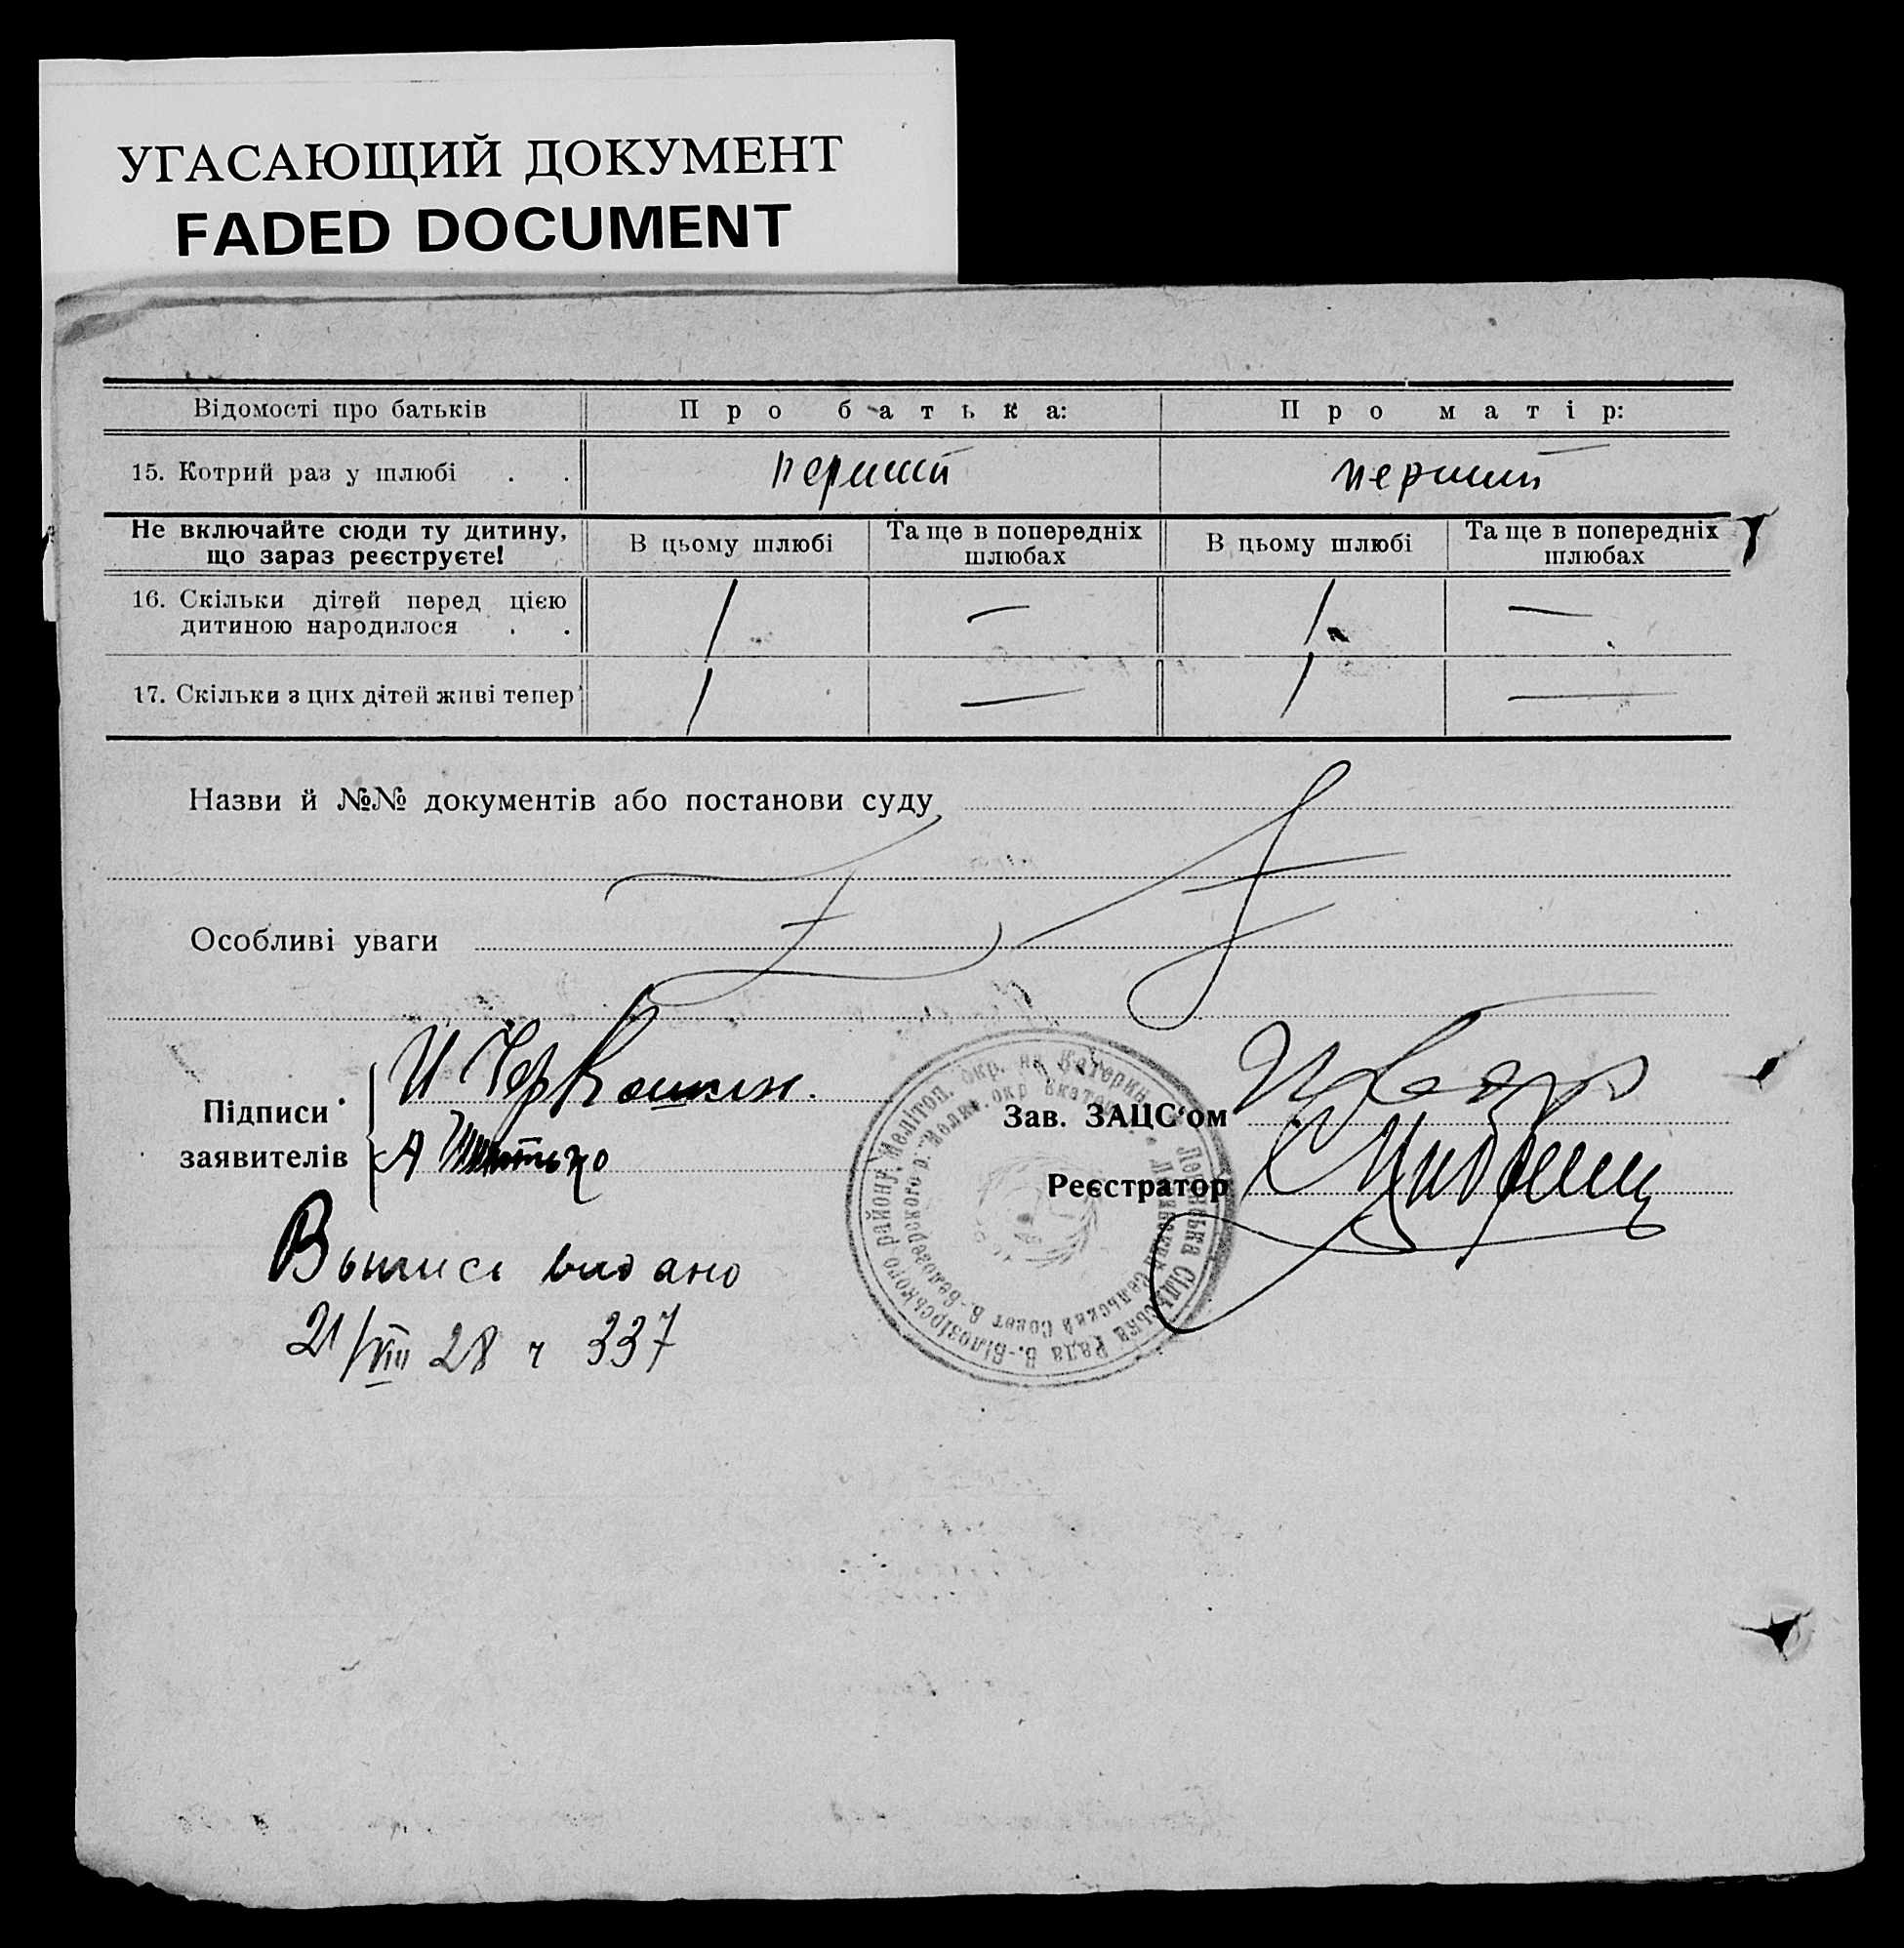 УГАСАЮЩИЙ ДОКУМЕНТ
FADED DOCUMENT
Відомості про батьків Про батька: Про матір:
15. Котрий раз у шлюбі . . перший перший
Не включайте сюди ту дитину, що зараз реєструєте! В цьому шлюбі Та ще в попередніх шлюбах В цьому шлюбі Та ще в попередніх шлюбах
16. Скільки дітей перед цією дитиною народилося . . 1 — 1 —
17. Скільки з цих дітей живі тепер 1 — 1 —
Назви й №№ документів або постанови суду
Особливі уваги
Підписи заявителів
И
А
Зав. ЗАЦС‘ом
Реєстратор
Сільська Рада В.-Білозірського району, Мелітоп. окр. на Катерин.
Сельский Совет В.-Белозерского р. Мелит. окр Екатер.
Выпись видано
21/VIII 28 ч 337